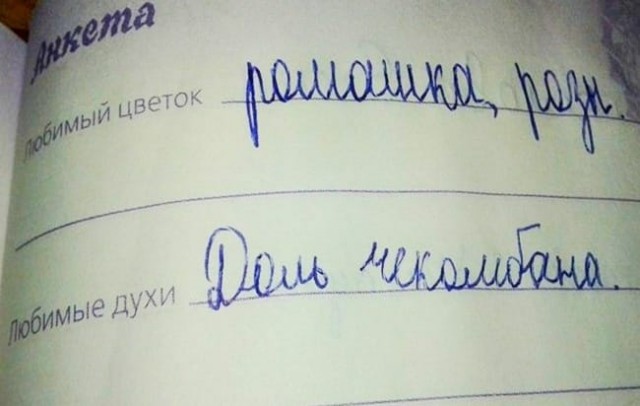 Анкета
Любимый цветок ромашка, розы.
Любимые духи Доль чекомбана.